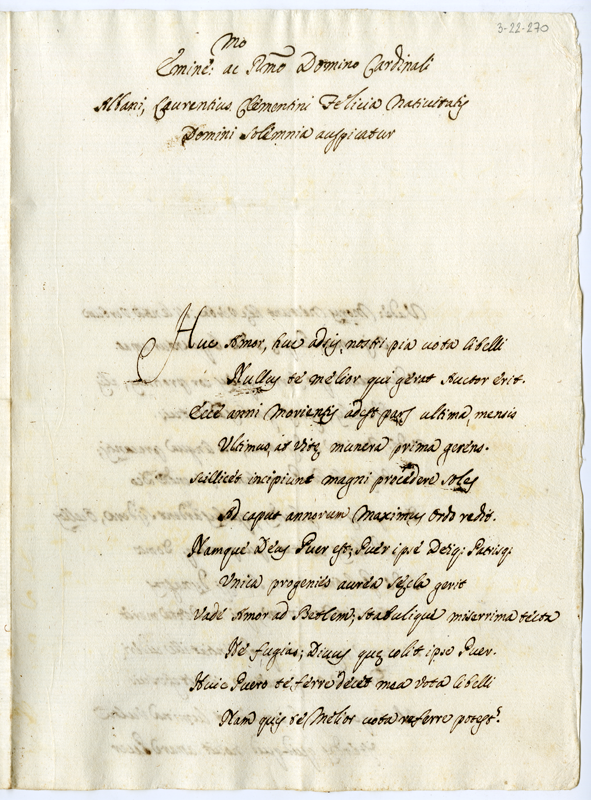 3-22-270
Eminē: mo ac Rmo Domino Cardinali
Albani, Laurentius Clementini Felicia Nativitatis
Domini Solemnia auspicatur
Huc Amor, huc adsis, nostri pia vota libelli
Nullus te melior qui gerat Auctor erit.
Ecce anni Morientis adest pars ultima, mensis
Ultimus, at vitę munera prima gerens.
Scillicet incipiunt magni procedere soles
Ad caput annorum Maximus Ordo redit.
Namque Deus Puer est; Puer ipse Deiq; Patrisq;
Unica progenies aurea Sęcla gerit
Vade Amor ad Betlem, stabulique miserrima tecta
Ne fugias; Divus quę colit ipse Puer.
Huic Puero te ferre decet mea vota libelli
Nam quis te Melior vota referre potest?